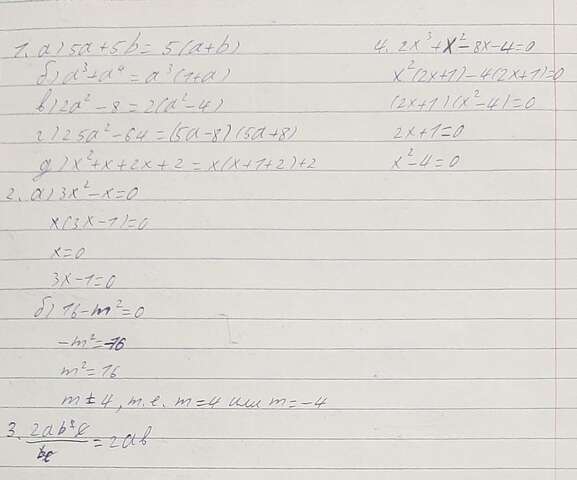 1. а) 5a+5b = 5(a+b)
б) a³+a⁴ = a³(1+a)
в) 2a²-8 = 2(a²-4)
г) 25a²-64 = (5a-8)(5a+8)
д) x²+x+2x+2 = x(x+1+2)+2
2. а) 3x²-x=0
x(3x-1)=0
x=0
3x-1=0
б) 16-m²=0
-m²=-16
m²=16
m±4, т.е. m=4 или m=-4
3. 2ab²c/bc = 2ab
4. 2x³+x²-8x-4=0
x²(2x+1)-4(2x+1)=0
(2x+1)(x²-4)=0
2x+1=0
x²-4=0